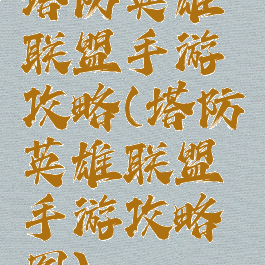 塔防英雄
联盟手游
攻略(塔防
英雄联盟
手游攻略
图)